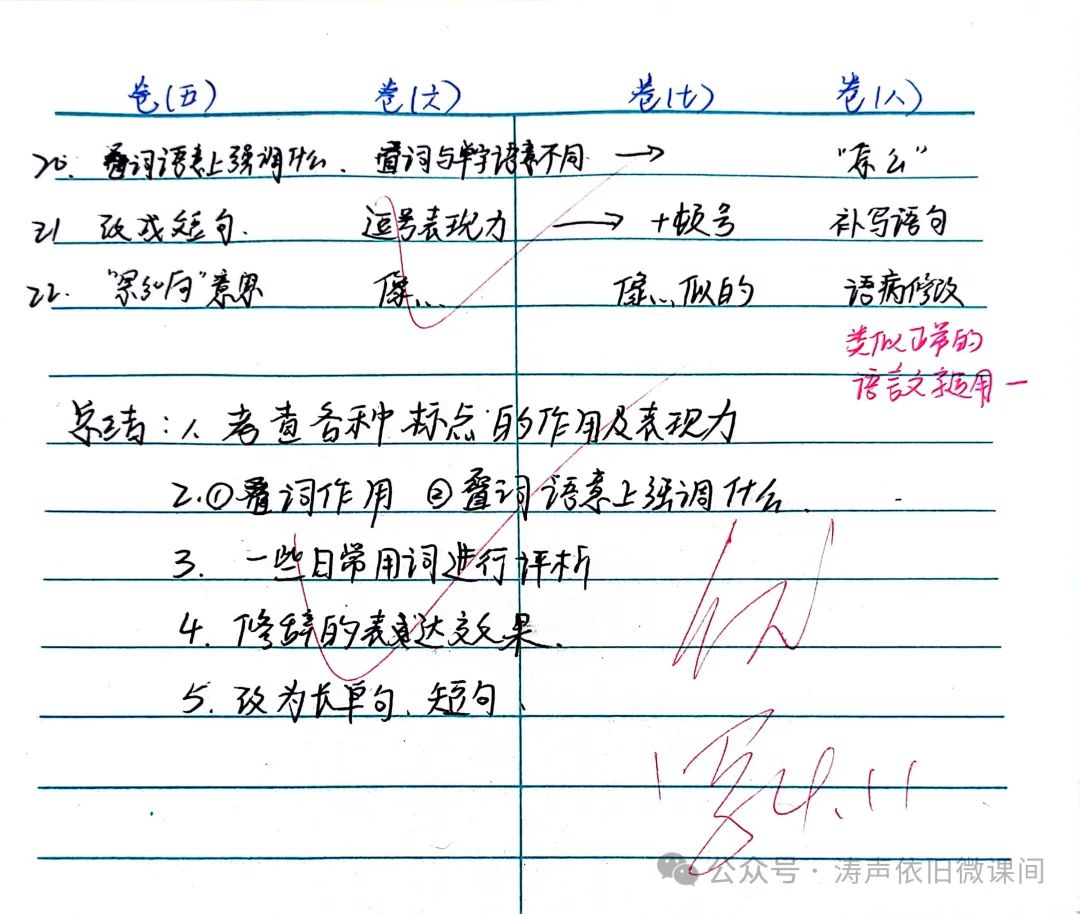 卷(五) 卷(六) 卷(七) 卷(八)
20. 叠词语意上强调什么. 叠词与单字语意不同 → "怎么"
21 改成短句. 逗号表现力 → +顿号 补写语句
22. 意思 像… 像…似的 语病修改
类似正常的
语言文字运用一
总结:1. 考查各种标点的作用及表现力
2.①叠词作用 ②叠词语意上强调什么.
3. 一些日常用词进行评析
4. 修辞的表达效果.
5. 改为长单句、短句.
4.11
公众号·涛声依旧微课间